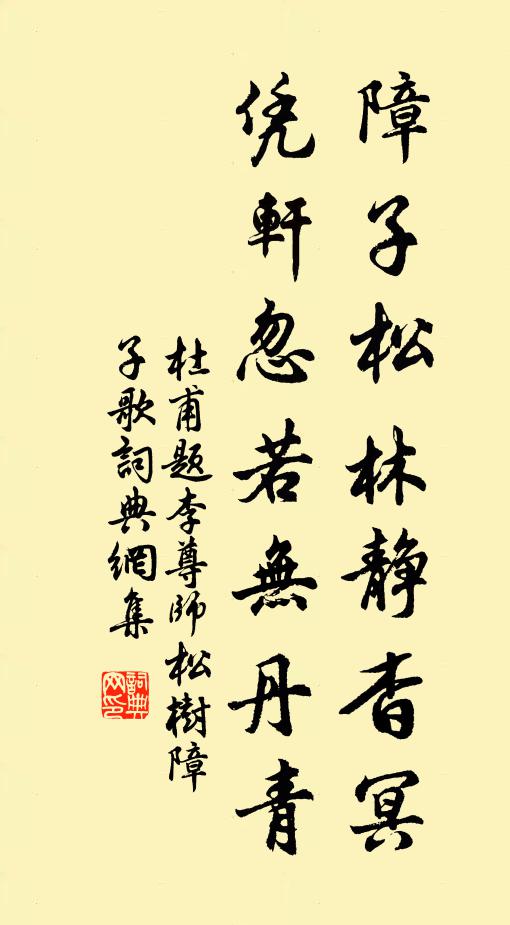 障子松林静杳冥
凭軒忽若無丹青
杜甫题李尊師松樹障
子歌詞典網集
詞典网印